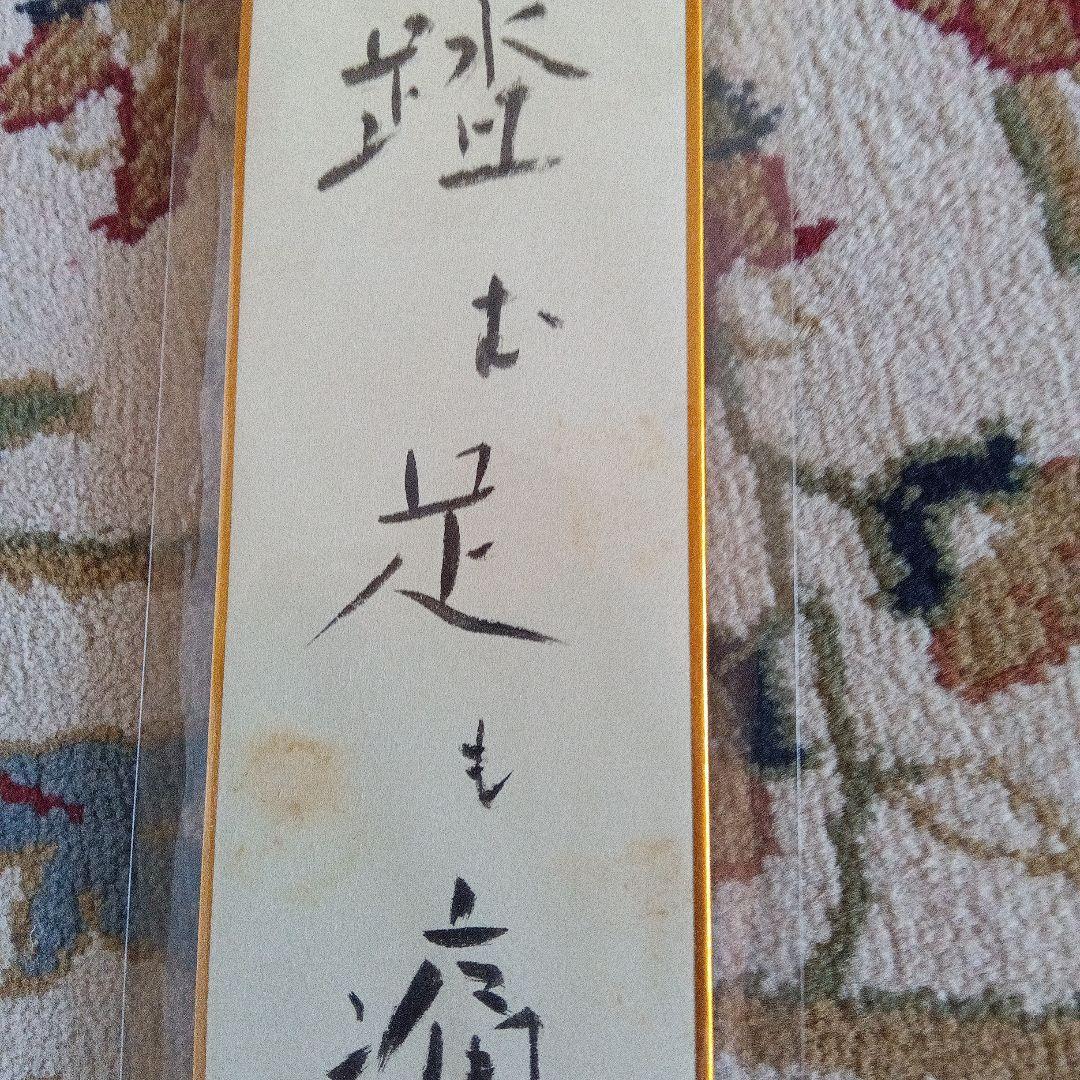 踏む足も痛